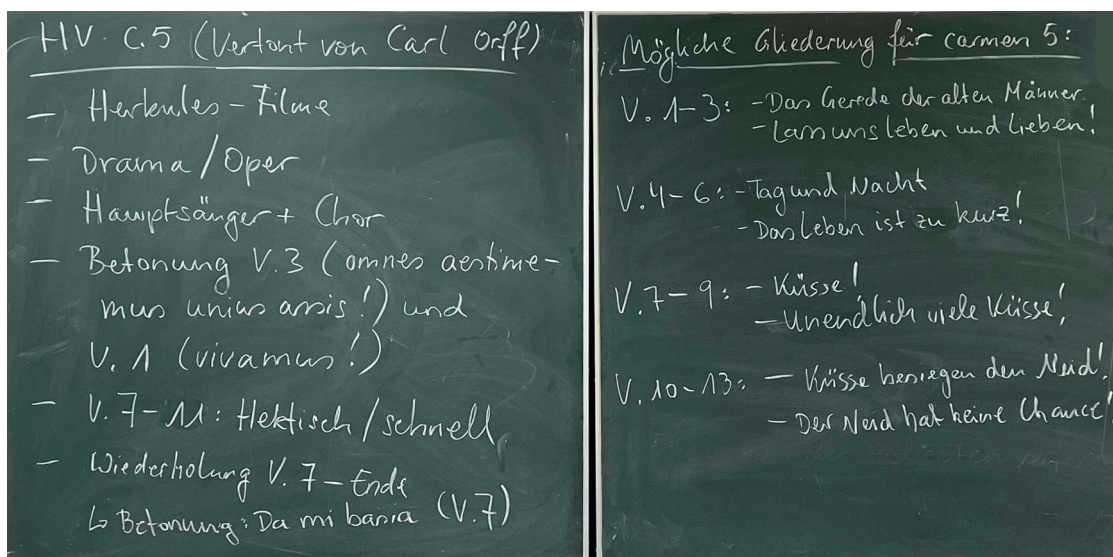 HV. C.5 (Vertont von Carl Orff)
- Herkules-Filme
- Drama/Oper
- Hauptsänger + Chor
- Betonung V.3 (omnes aestime-
mus unius assis!) und
V. 1 (vivamus!)
- V. 7-11: Hektisch/schnell
- Wiederholung V. 7-Ende
↳ Betonung: Da mi basia (V.7)
Mögliche Gliederung für carmen 5:
V. 1-3: - Das Gerede der alten Männer
- Lass uns leben und lieben!
V. 4-6: - Tag und Nacht
- Das Leben ist zu kurz!
V. 7-9: - Küsse!
- Unendlich viele Küsse!
V. 10-13: - Küsse besiegen den Neid!
- Der Neid hat keine Chance!